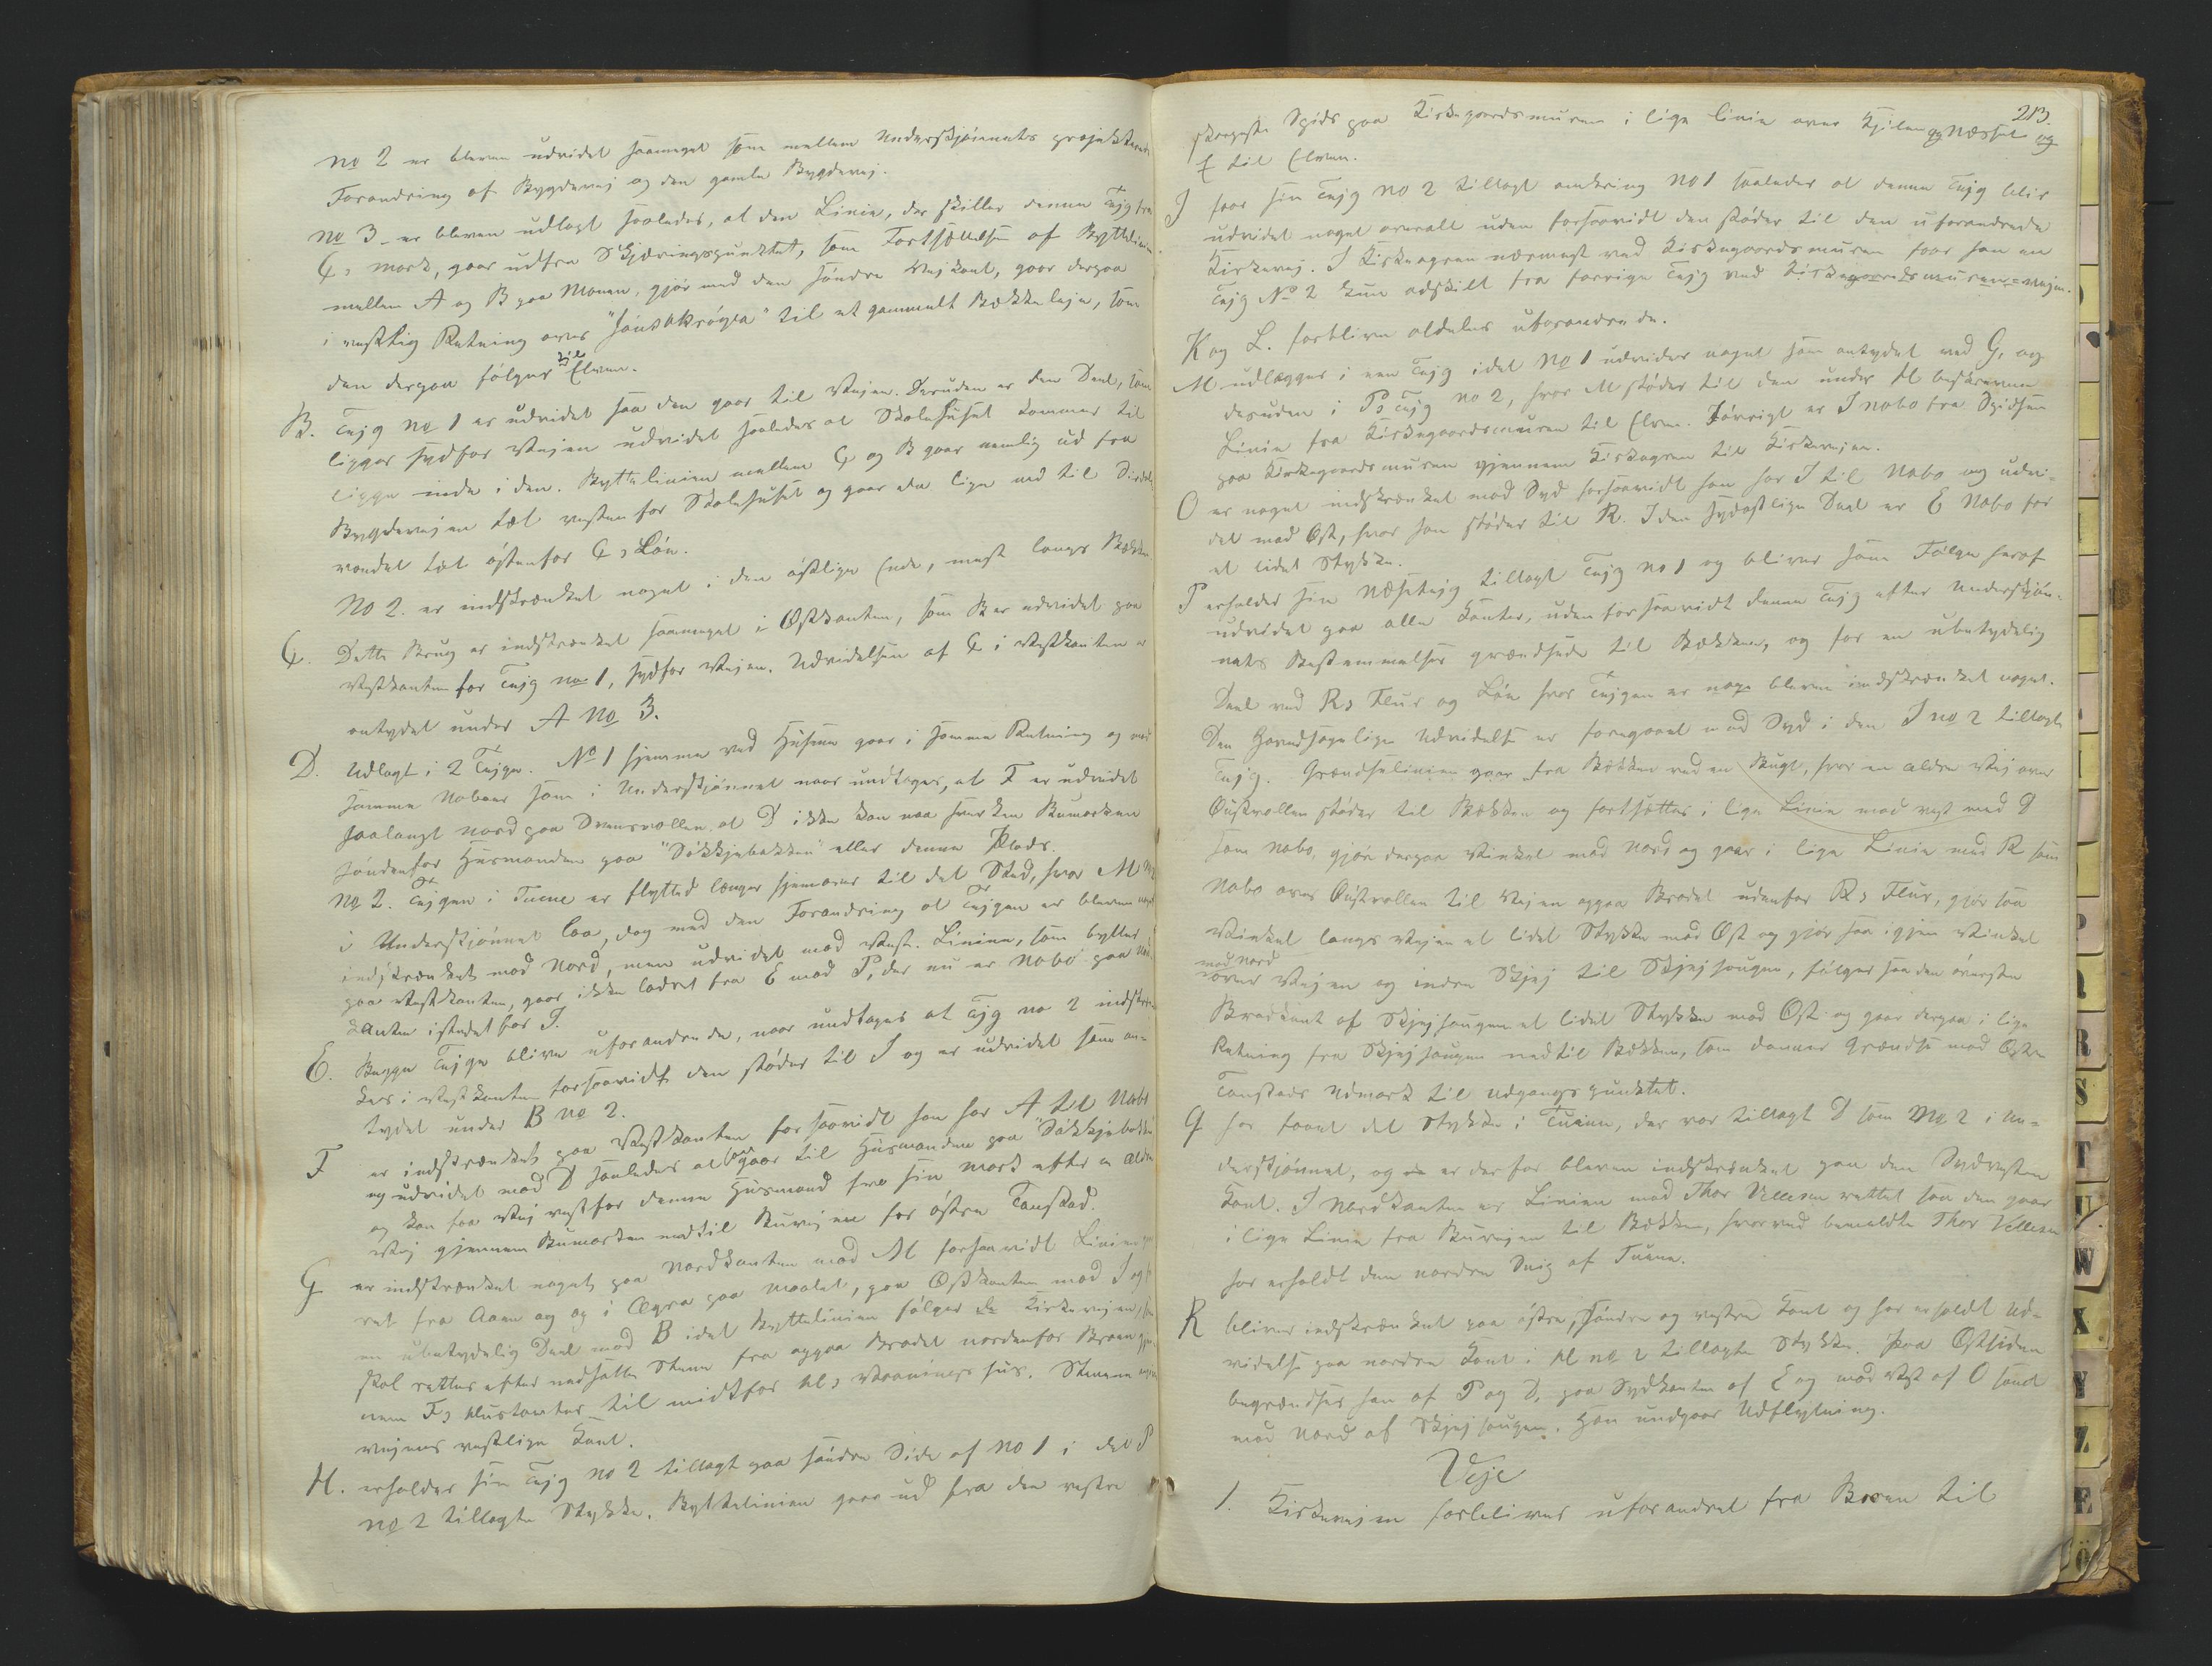 No 2 er bleven udvidet saameget som mellem Underskjønnets projekterede
Forandring af Bygdevej og den gamle Bygdevej.
No 3 er bleven udlagt saaledes, at den Linie, der skiller denne Tejg fra
C's mark, gaar udfra Skjæringspunktet, som Fortsættelse af Byttelinien
mellem A og B paa Moen, gjør med den søndre Vejkant, gaar derpaa
i vestlig Retning over til et gammelt Bækkeleje, som
den derpaa følger til Elven.
B. Tejg No 1 er udvidet saa den gaar til Vejen. Desuden er den Deel, som
ligger sydfor Vejen udvidet saaledes at Skolehuset kommer til
ligge inde i den. Byttelinien mellem C og B gaar nemlig ud fra
Bygdevejen tæt vestenfor Skolehuset og gaar en lige ned til
vandet tæt østenfor C's Løe.
No 2. er indskrænket noget i den østlige Ende, mest langs Bækken
C. Dette Brug er indskrænket saameget i Østkanten, som B er udvidet paa
Vestkanten for Tejg no 1, sydfor Vejen. Udvidelsen af C i Vestkanten er
antydet under A No 3.
D. Udlagt i 2 Tejge. No 1 hjemme ved Husene gaar i samme Retning og med
samme Naboer som i Underskjønnet naar undtages, at F er udvidet
saalangt nord paa at D ikke kan naa hverken Bumarken
søndenfor Husmanden paa "Søkkjebakken" eller denne Plads.
No 2. Tejgen i Tuene er flyttet længer hjemover til det Sted, hvor M No 2
i Underskjønnet laa, dog med den Forandring at Tejgen er bleven noget
indskrænket mod Nord, men udvidet mod Vest. Linien, som byttes
paa Vestkanten, gaar ikke lodret fra E mod P, der nu er Nabo paa
Kanten istedetfor I.
E. Begge Tejge blive uforandrede, naar undtages at Tejg no 2 indskrænkes
i Vestkanten forsaavidt den støder til I og er udvidet som an-
tydet under B no 2.
F er indskrænket paa Vestkanten forsaavidt han har A til Nabo
og udvidet mod D saaledes at han gaar til Husmanden paa "Søkkjebakken"
og kan faa Vej vestfor denne Husmand fra sin Mark efter en ældre
Vej gjennem Bumarken ned til Buvejen for østre Tanstad.
G er indskrænket noget paa Nordkanten mod M forsaavidt Linien
ret fra Aaen og op i paa Maalet, paa Østkanten mod I og
en ubetydelig Deel mod B idet Byttelinien følger Kirkevejen,
skal rettes efter nedsatte Stene fra oppaa Bradet nordenfor Broen gjen-
nem F's til midtfor H's Vaaningshus. Stenene
vejens vestlige Kant.
H. erholder sin Tejg no 2 tillagt paa søndre Side af no 1 i det P
no 2 tillagte Stykke. Byttelinien gaar ud fra den vestre
213.
skarpeste Spids paa Kirkegaardsmuren i lige Linie over Kjilen og Næsset og
til Elven.
I faar sin Tejg no 2 tillagt omkring no 1 saaledes at denne Tejg blir
udvidet noget overalt uden forsaavidt den støder til den uforandrede
Kirkevej. I Kirkeageren nærmest ved Kirkegaardsmuren faar han en
Tejg No 2 kun adskilt fra forrige Tejg ved Kirkegaardsmuren=vejen.
K og L. forblive aldeles uforandrede.
M udlægges i een Tejg idet No 1 udvides noget som antydet ved G, og
desuden i P's Tejg no 2, hvor M støder til den under H beskrevne
Linie fra Kirkegaardsmuren til Elven. Iøvrigt er I nabo fra Spidsen
paa Kirkegaardsmuren gjennem Kirkageren til Kirkevejen.
O er noget indskrænket mod Syd forsaavidt han har I til Nabo og udvi-
det mod Øst, hvor han støder til R. I den sydøstlige Deel er E Nabo for
et lidet Stykke.
P erholder sin Næstejg tillagt Tejg no 1 og bliver som Følge heraf
udvidet paa alle Kanter, uden forsaavidt denne Tejg efter Underskjøn-
nets Bestemmelser grændsede til Bækken, og for en ubetydelig
Deel ved R's Flur og Løe hvor Tejgen er bleven indskrænket noget.
Den hovedsagelige Udvidelse er foregaaet mod Syd i den I no 2 tillagte
Tejg. Grændselinien gaar fra Bækken ved en Bugt, hvor en ældre Vej over
støder til Bækken og fortsættes i lige Linie mod vest med D
som Nabo, gjør derpaa Vinkel mod Nord og gaar i lige Linie med R som
Nabo over til Vejen oppaa Bradet udenfor R's Flur, gjør saa
Vinkel langs Vejen et lidet Stykke mod Øst og gjør saa igjen Vinkel
mod Nord
over Vejen og indre Skjej til Skjejhaugen, følger saa den øverste
Bradkant af Skjejhaugen et lidet Stykke mod Øst og gaar derpaa i lige
Retning fra Skjejhaugen ned til Bækken, som danner Grændse mod Østre
Tanstads Udmark til Udgangspunktet.
Q har faaet det Stykke i Tuene, der var tillagt D som No 2 i Un-
derskjønnet, og er derfor bleven indskrænket paa den Sydvestre
Kant. I Nordkanten er Linien mod Thor Vellesen rettet saa den gaar
i lige Linie fra Buvejen til Bækken, hvorved bemeldte Thor Vellesen
har erholdt den nordre Snip af Tuene.
R bliver indskrænket paa østre, søndre og vestre Kant og har erholdt Ud-
videlse paa nordre Kant i H no 2 tillagte Stykke. Paa Østsiden
begrændses han af P og D, paa Sydkanten af E og mod Vest af O samt
mod Nord af Skjejhaugen. Han undgaar Udflytning.
Veje
1. Kirkevejen forbliver uforandret fra Broen til